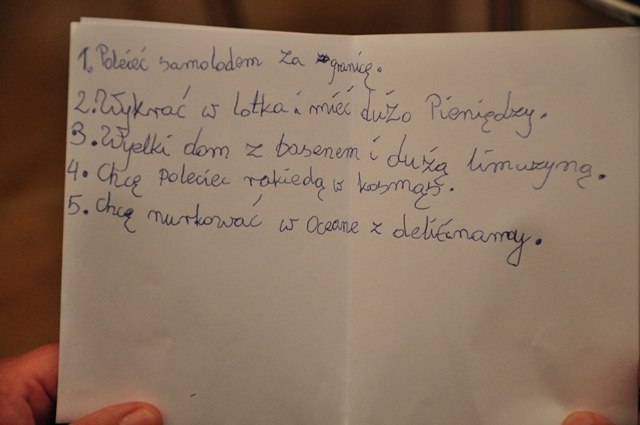 1. Polecieć samolodem za granicę.
2. Wykrać w lotka i mieć dużo Pieniędzy.
3. Wyelki dom z basenem i dużą limuzyną.
4. Chcę polecieć rakiedą w kosmos.
5. Chcę nurkować w Oceane z delfinamy.